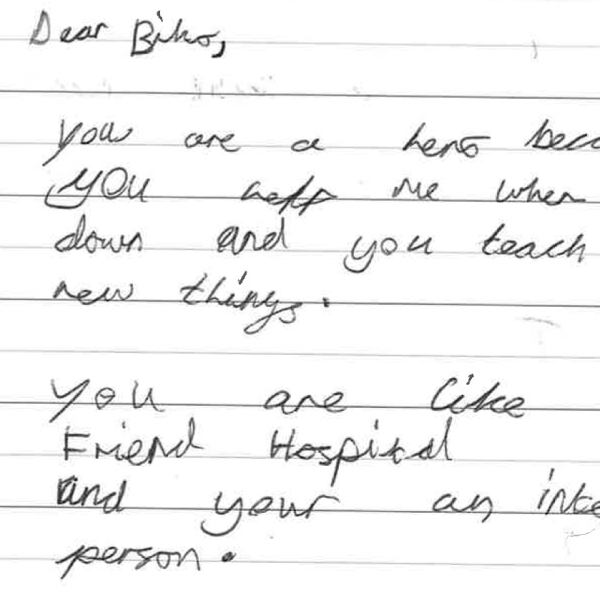 Dear Biko,
you are a hero beca
you help me when
down and you teach
new things.
you are like
Friend Hospital
and your an inte
person.